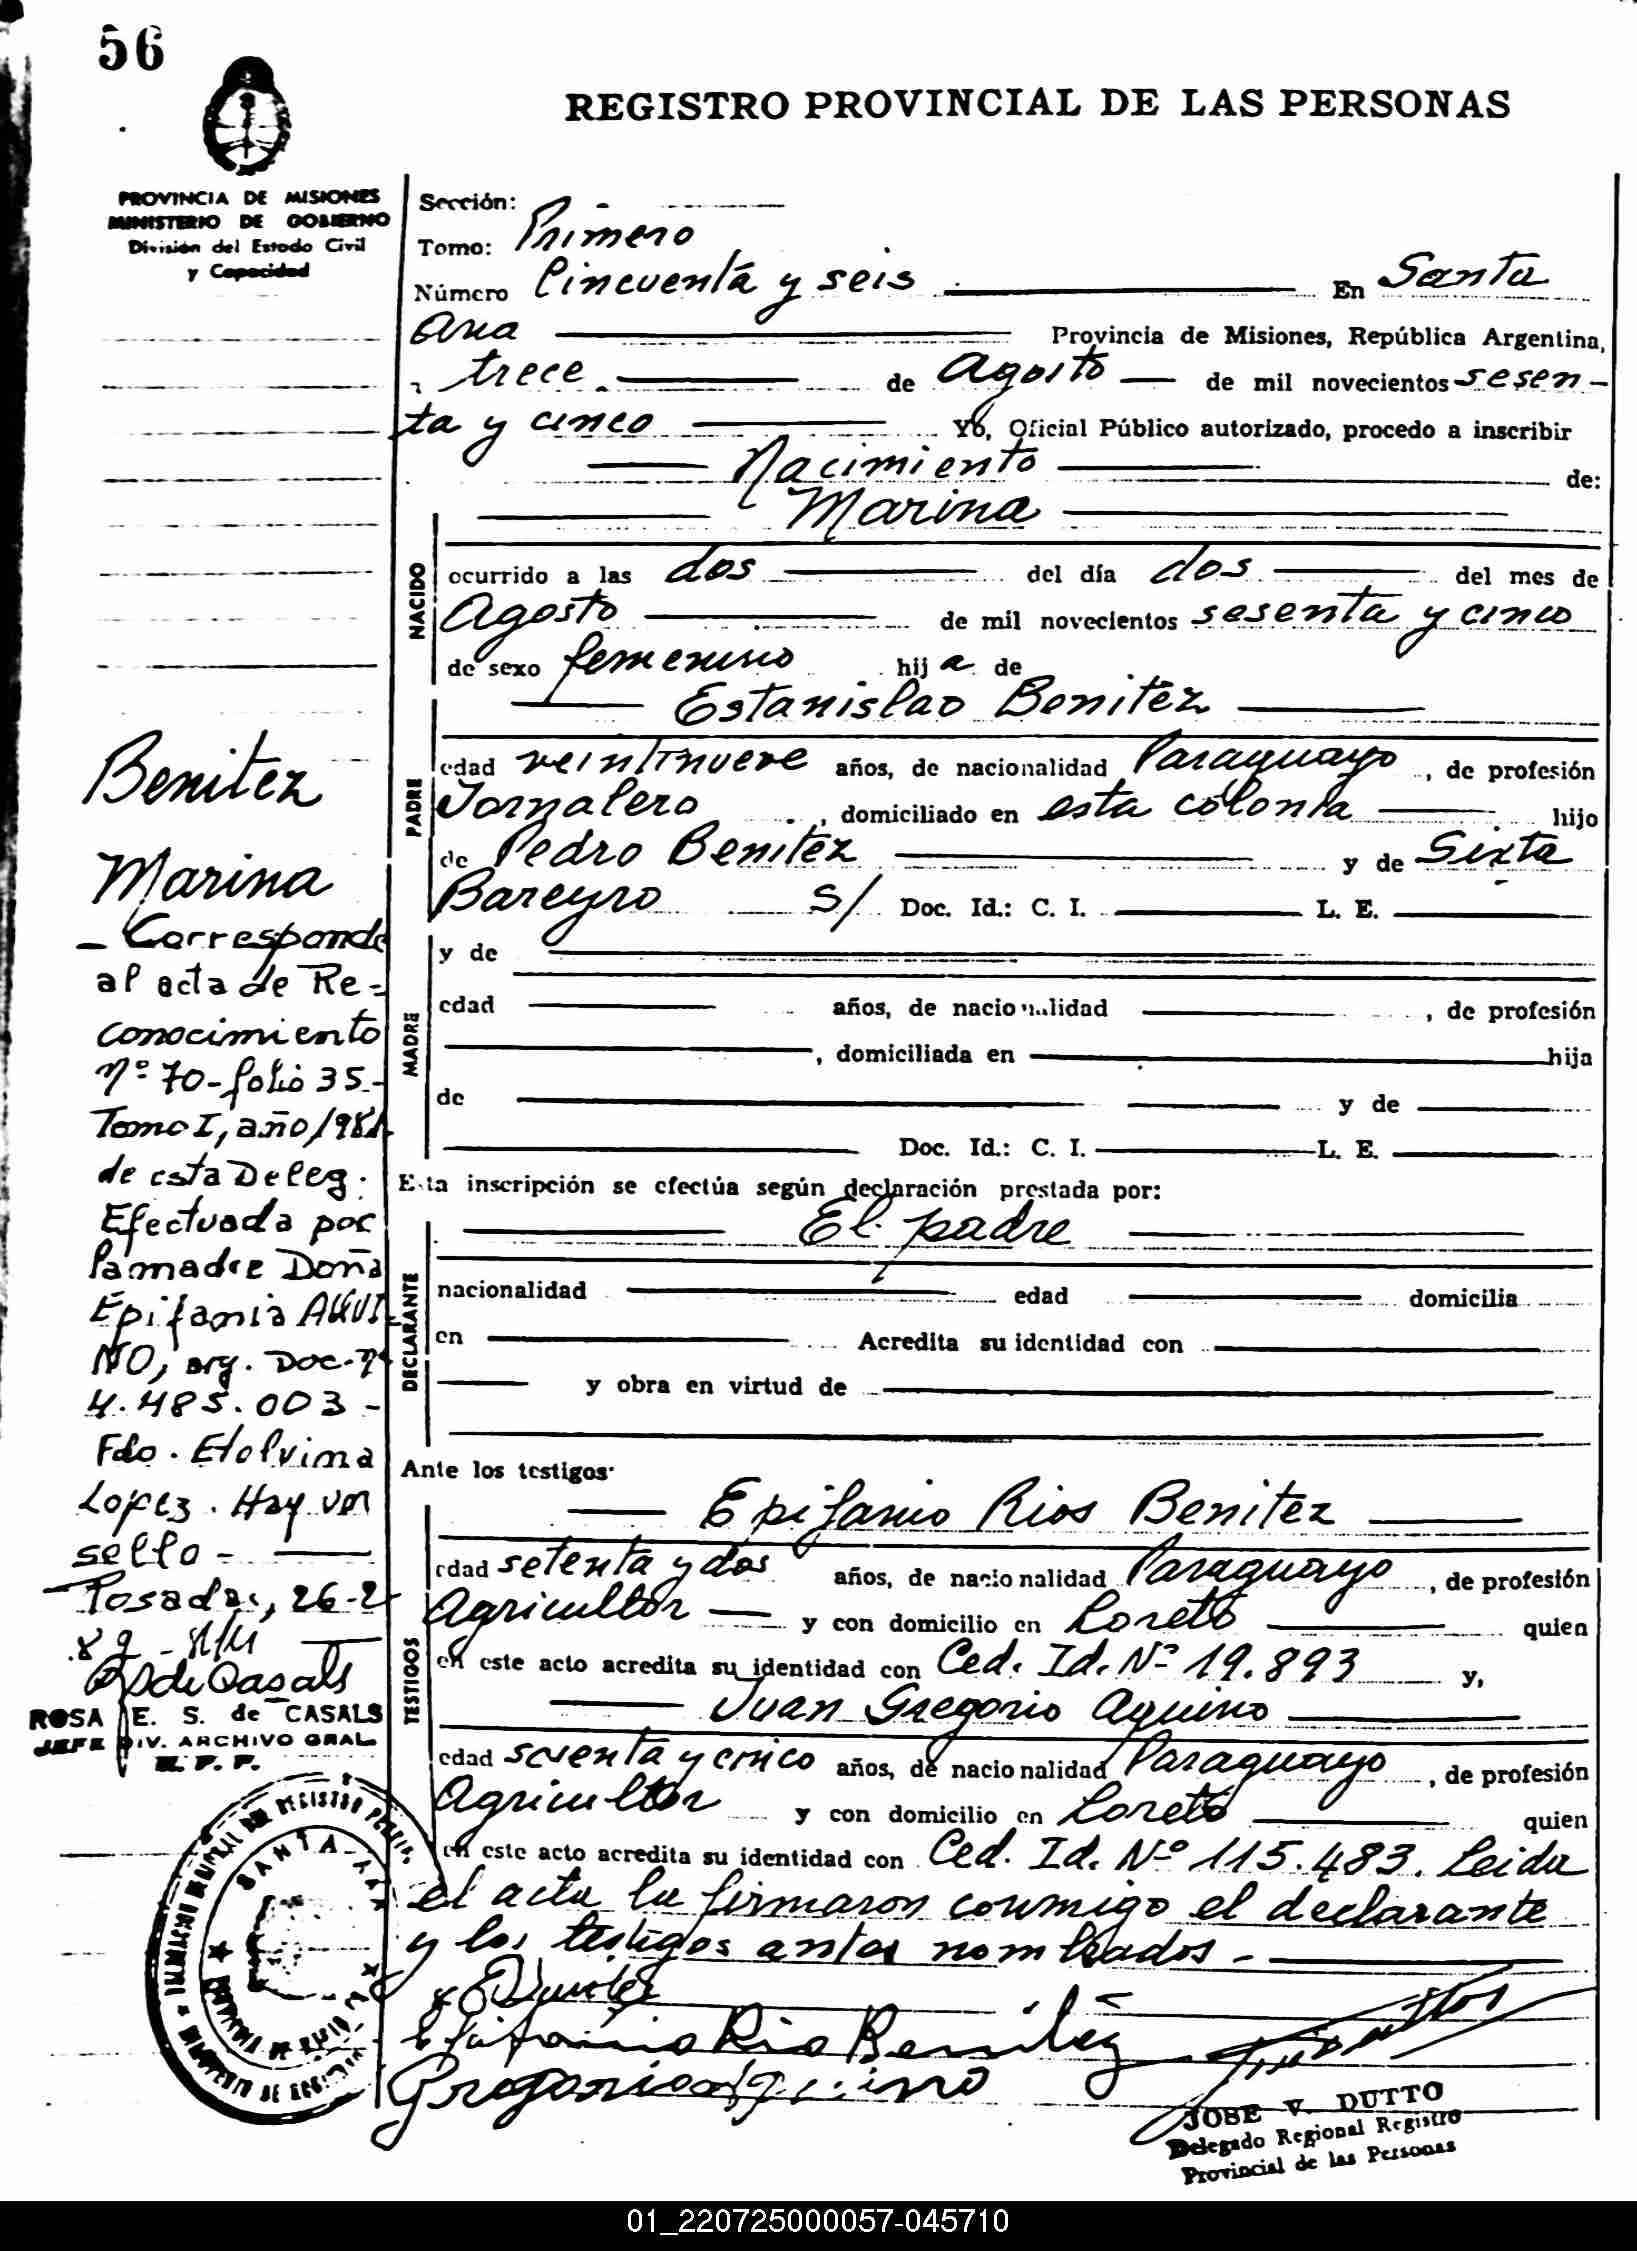 56
REGISTRO PROVINCIAL DE LAS PERSONAS
PROVINCIA DE MISIONES
MINISTERIO DE GOBIERNO
División del Estado Civil
y Capacidad
Sección:
Tomo: Primero
Número Cincuenta y seis En Santa
Ana Provincia de Misiones, República Argentina,
a trece de Agosto de mil novecientos sesen-
ta y cinco Yo, Oficial Público autorizado, procedo a inscribir
Nacimiento de:
Marina
NACIDO
ocurrido a las dos del día dos del mes de
Agosto de mil novecientos sesenta y cinco
de sexo femenino hij a de
Estanislao Benitez
PADRE
edad veintinueve años, de nacionalidad Paraguayo, de profesión
Jornalero, domiciliado en esta colonia hijo
de Pedro Benitez y de Sixta
Bareyro S/ Doc. Id.: C. I. L. E.
MADRE
y de
edad años, de nacionalidad , de profesión
, domiciliada en hija
de y de
Doc. Id.: C. I. L. E.
Esta inscripción se efectúa según declaración prestada por:
El padre
DECLARANTE
nacionalidad edad domicilia
en Acredita su identidad con
y obra en virtud de
Ante los testigos:
Epifanio Rios Benitez
TESTIGOS
edad setenta y dos años, de nacionalidad Paraguayo, de profesión
Agricultor y con domicilio en Loreto quien
en este acto acredita su identidad con Ced. Id. Nº 19.893 y,
Juan Gregorio Aquino
edad sesenta y cinco años, de nacionalidad Paraguayo, de profesión
Agricultor y con domicilio en Loreto quien
en este acto acredita su identidad con Ced. Id. Nº 115.483. Leida
el acta la firmaron conmigo el declarante
y los testigos antes nombrados.-
Epifanio Rio Benitez
Gregorio Aquino
JOSE V. DUTTO
Delegado Regional Registro
Provincial de las Personas
Benitez
Marina
- Corresponde
al acta de Re-
conocimiento
Nº 70-folio 35-
Tomo I, año
de esta Deleg.
Efectuada por
la madre Doña
Epifania AQUI-
NO, arg. Doc. nº
4.485.003-
Fdo. Etelvina
Lopez. Hay un
sello-
Posadas, 26-2
89-
ROSA E. S. de CASALS
JEFE DIV. ARCHIVO GRAL.
R. P. P.
SANTA ANA
01_220725000057-045710